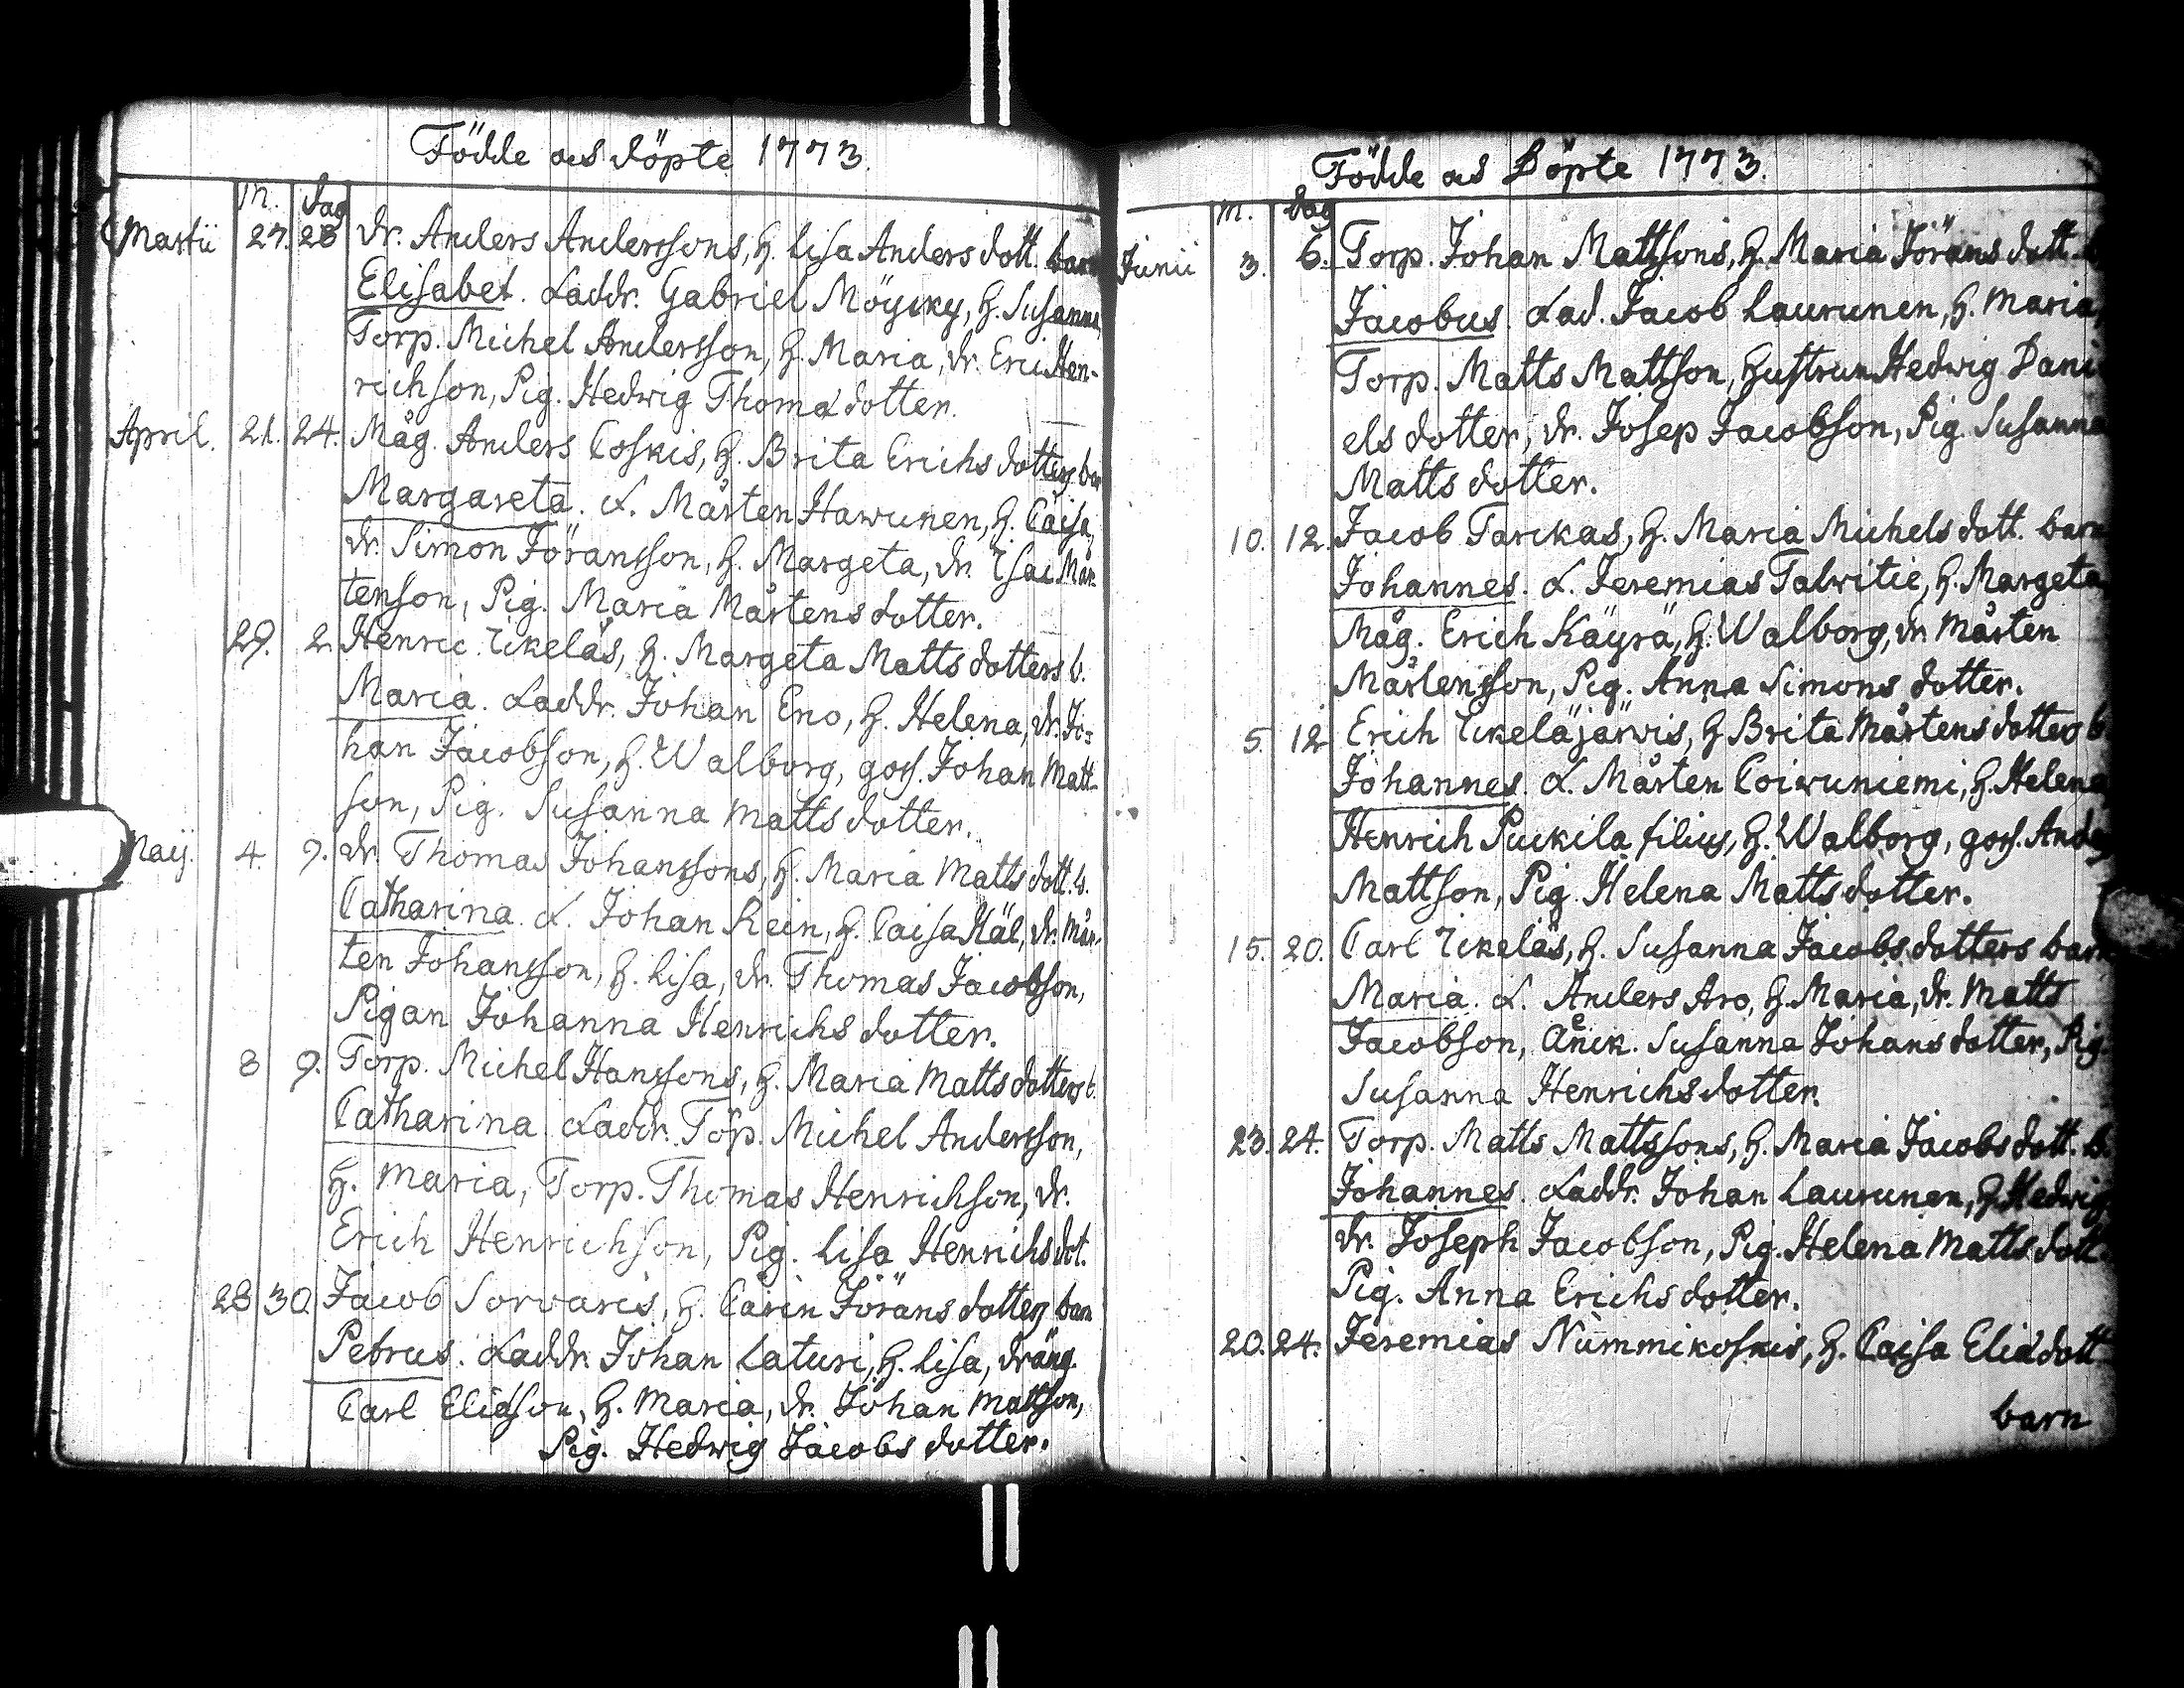 Födde och döpte 1773.
m. dag
Martii 27. 28 dr. Anders Anderssons, h. Lisa Anders dott. barn
Elisabet. Laddr. Gabriel Möycky, h. Susanna,
Torp. Michel Andersson, h. Maria, dr. Eric Hen-
richson, Pig. Hedwig Thomædotter.
April. 21. 24. Måg. Anders Coskis, h. Brita Erichs dotters barn
Margareta. L. Mårten Hawunen, h. Caisa,
dr. Simon Föransson, h. Margeta, dr. Isac Mår-
tenson, Pig. Maria Mårtens dotter.
29. 2. Henric Ickeläs, h. Margeta Matts dotters b.
Maria. Laddr. Johan Eno, h. Helena, dr. Jo-
han Jacobson, h. Walborg, goss. Johan Matt-
son, Pig. Susanna Matts dotter.
Maij. 4. 9. dr. Thomas Johanssons, h. Maria Matts dott. b.
Catharina. L. Johan Rein, h. Caisa Käl, dr. Mår-
ten Johansson, h. Lisa, dr. Thomas Jacobson,
Pigan Johanna Henrichs dotter.
8 9. Torp. Michel Hanssons, h. Maria Matts dotters b.
Catharina Laddr. Torp. Michel Andersson,
h. Maria, Torp. Thomas Henrichson, dr.
Erich Henrichson, Pig. Lisa Henrichs dot.
28 30. Jacob Sorvaris, h. Carin Jörans dotters barn
Petrus. Laddr. Johan Laturi, h. Lisa, dräng.
Carl Eliæson, h. Maria, dr. Johan Mattson,
Pig. Hedwig Jacobs dotter.
Födde och Döpte 1773.
m. dag
Junii 3. 6. Torp. Johan Mattsons, h. Maria Jörans dott. b
Jacobus. Lad. Jacob Laurunen, h. Maria,
Torp. Matts Mattson, hustrun Hedwig Dani
els dotter, dr. Josep Jacobson, Pig. Susanna
Matts dotter.
10. 12. Jacob Tarckas, h. Maria Michels dott. barn
Johannes. L. Jeremias Talwitie, h. Margeta
Måg. Erich Käyrä, h. Walborg, dr. Mårten
Mårtensson, Pig. Anna Simons dotter.
5. 12 Erich Ickeläjärwis, h Brita Mårtens dotters b
Johannes. L. Mårten Coiwuniemi, h. Helena
Henrich Puckila filius, h. Walborg, goss. Anders
Mattson, Pig Helena Matts dotter.
15. 20. Carl Ickeläs, h. Susanna Jacobs dotters barn
Maria. L. Anders Aro, h. Maria, dr. Matts
Jacobson, Änck. Susanna Johans dotter, Pig.
Susanna Henrichs dotter.
23. 24. Torp. Matts Mattssons, h. Maria Jacobs dott. b.
Johannes. Laddr. Johan Laurunen, h. Hedwig
dr. Joseph Jacobson, Pig. Helena Matts dott.
Pig. Anna Erichs dotter.
20. 24. Jeremias Nummikoskis, h. Caisa Eliædott
barn